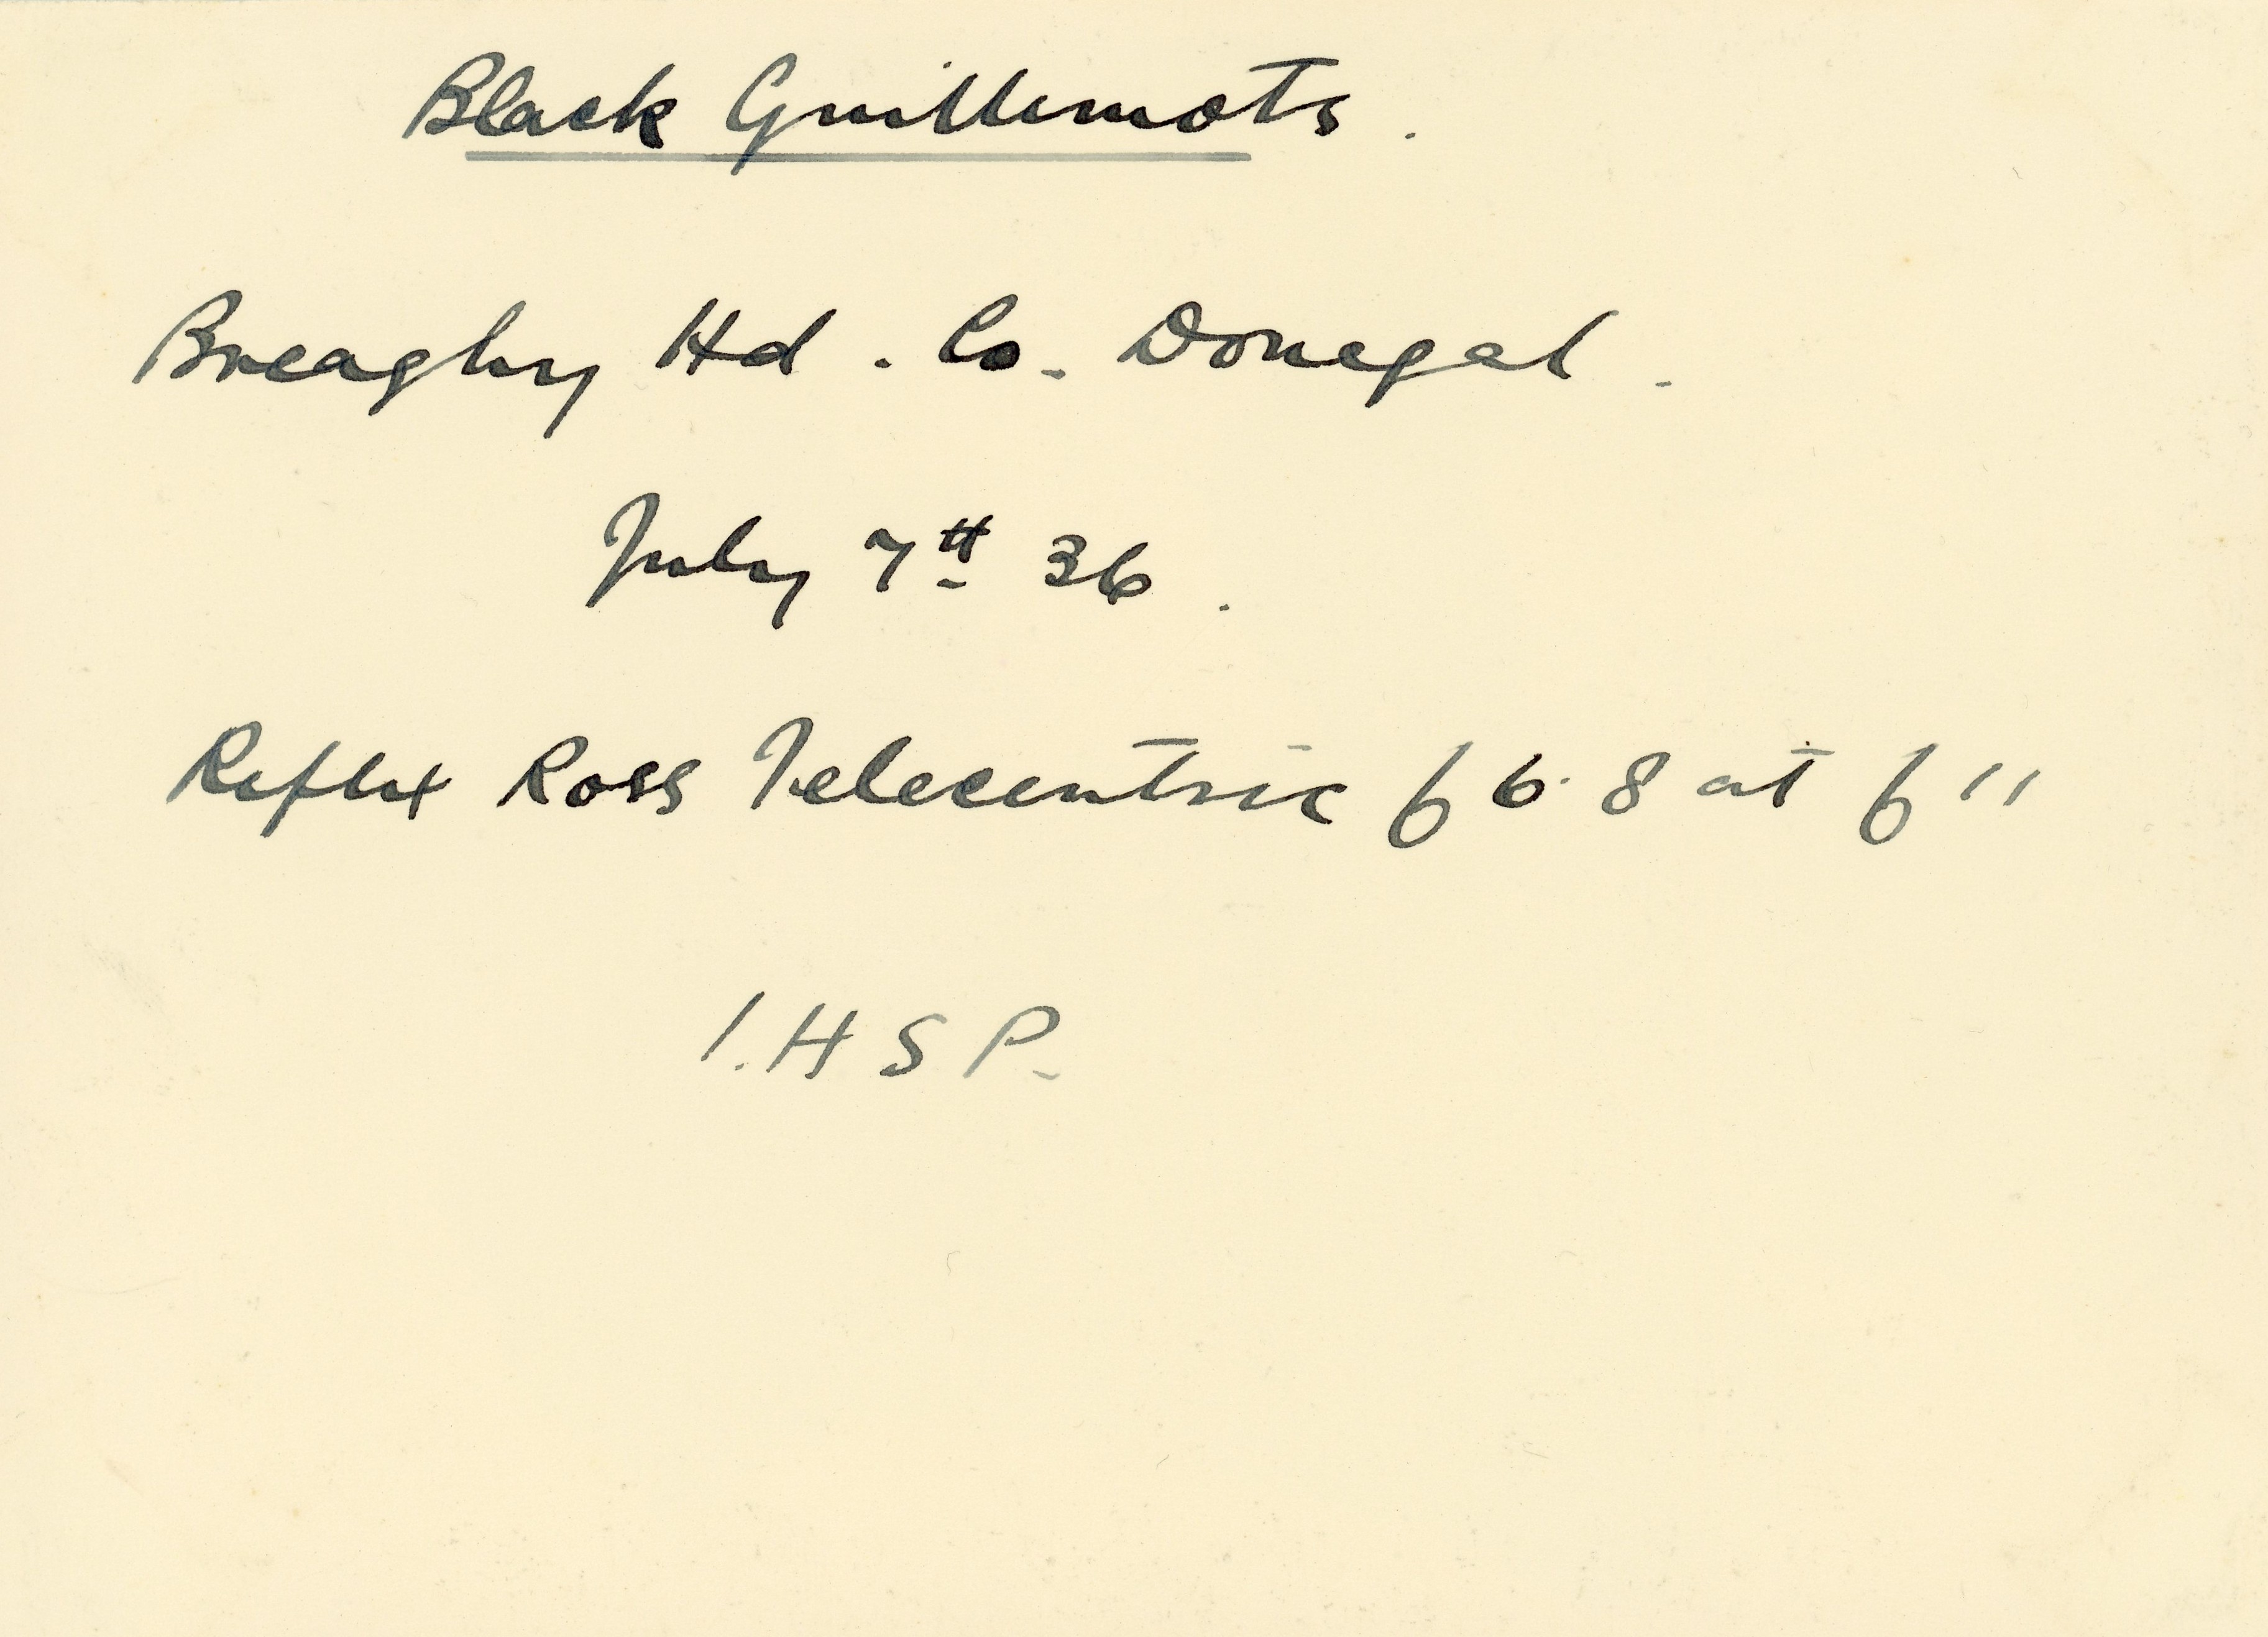 Black Guillemots.
Breaghy Hd. Co. Donegal.
July 7th 36.
Reflex Ross Telecentric f 6.8 at f 11
I.H S P.